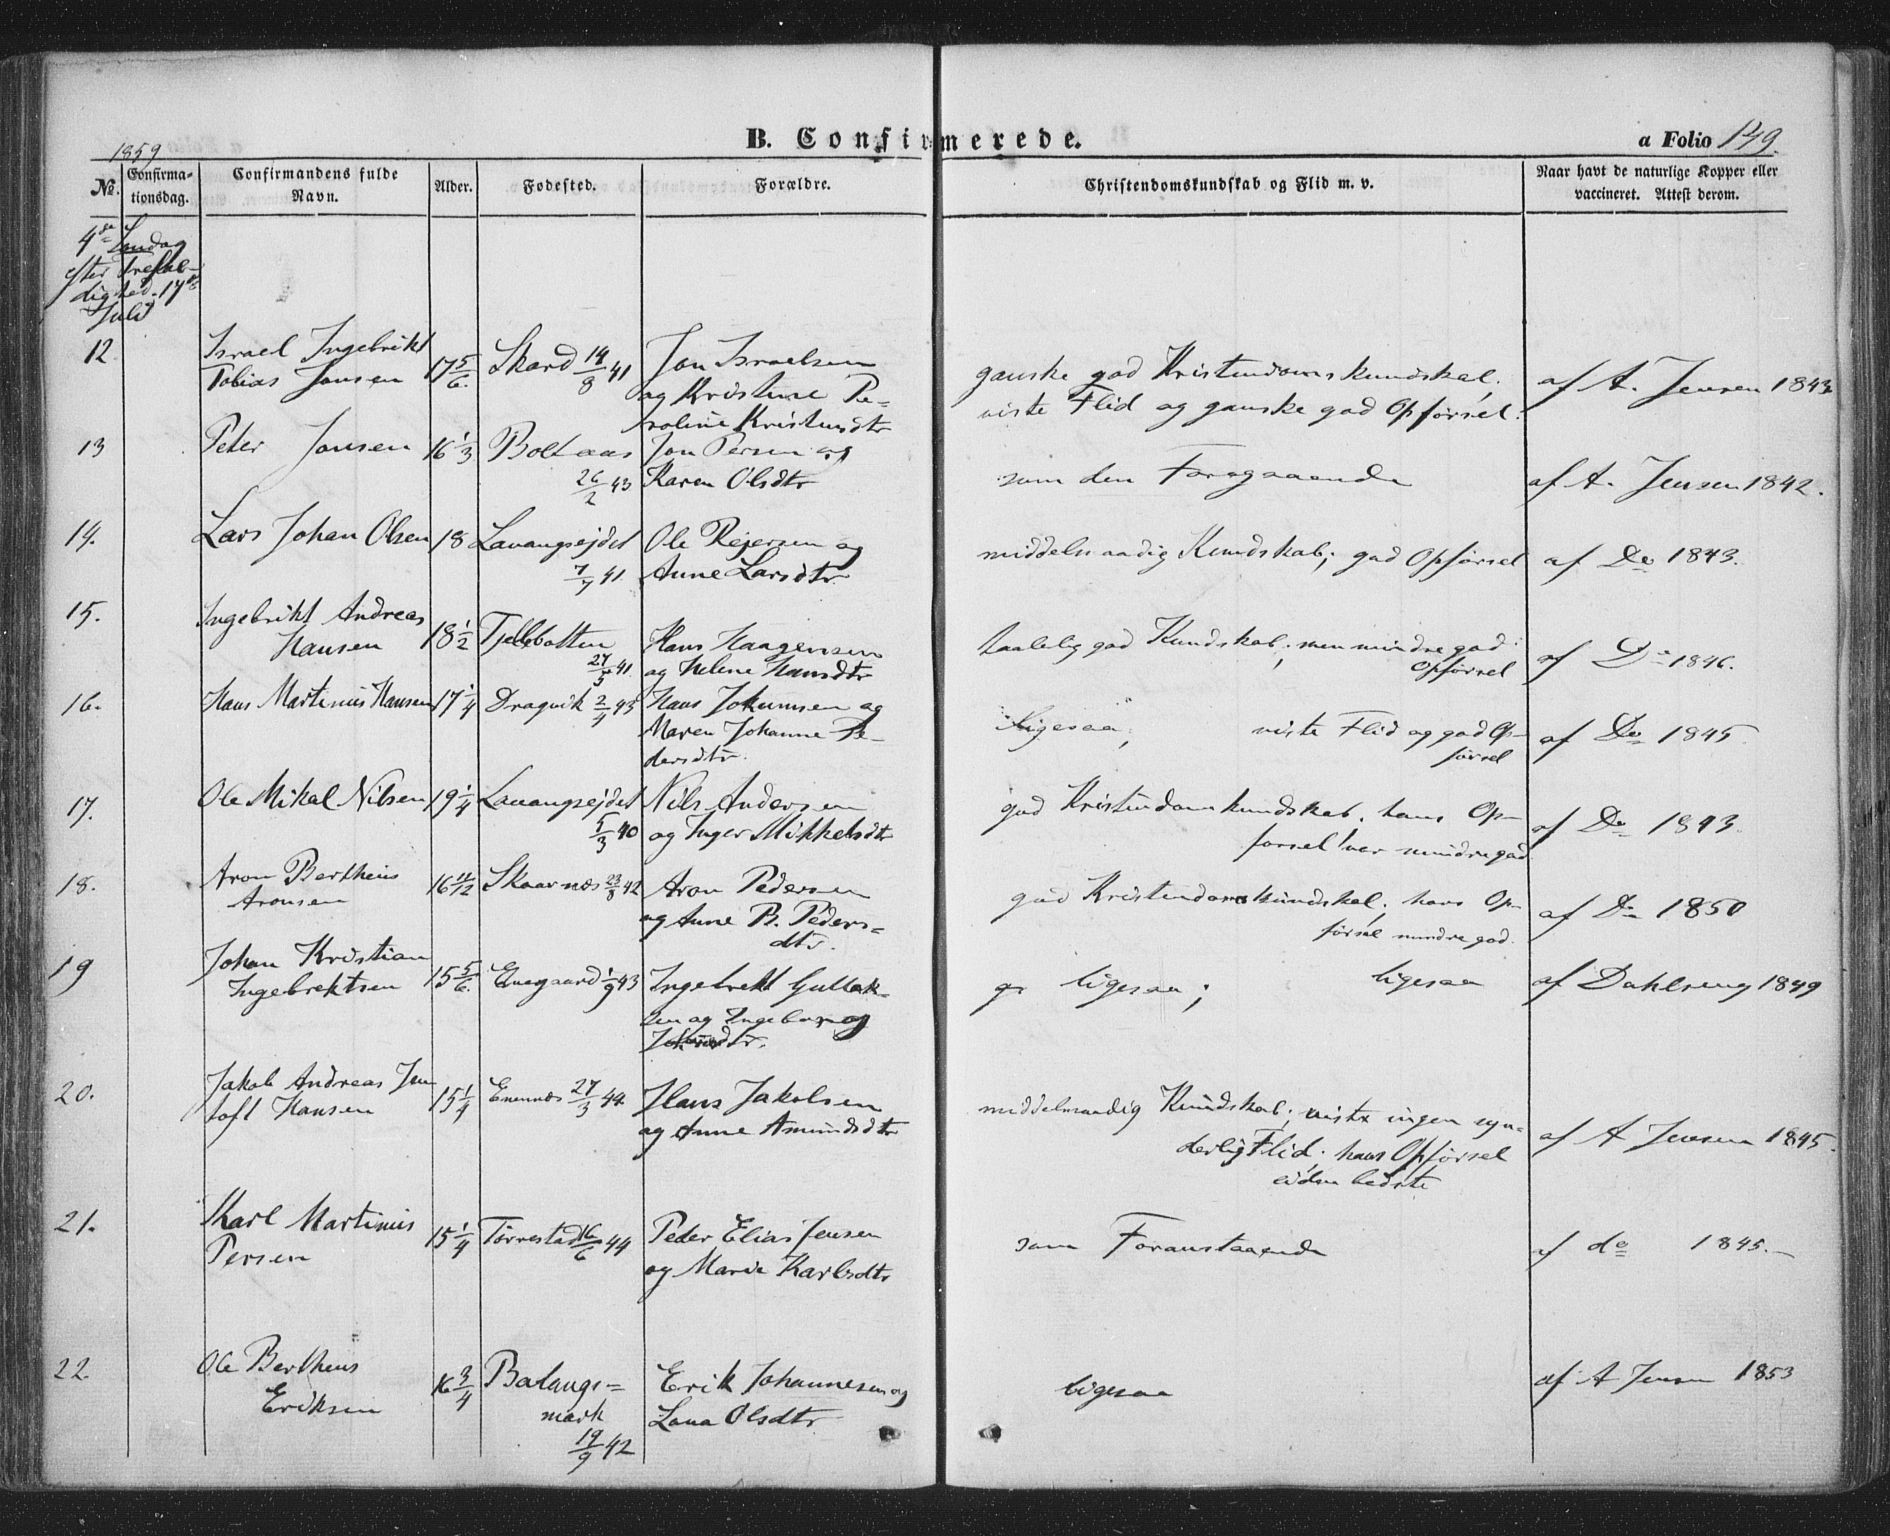 B. Confirmerede.
a Folio 149.
1859
No.
Confirma-
tionsdag.
Confirmandens fulde
Navn.
Alder.
Fødested.
Forældre.
Christendomskundskab og Flid m. v.
Naar havt de naturlige Kopper eller
vaccineret. Attest derom.
4de Søndag
efter Trefol-
dighed. 17de
Juli
12
Israel Ingebrikt
Tobias Jonsen
17 5/6
Skard 14/8 41
Jon Israelsen
og Kristine Pe-
roline Kristensdtr
ganske god Kristendomskundskab;
viste Flid og ganske god Opførsel.
af A. Jensen 1843
13
Peter Jonsen
16 1/3
Boltaas
26/2 43
Jon Persen og
Karen Olsdtr
som den Foregaaende
af A. Jensen 1842.
14.
Lars Johan Olsen
18
Lavangsejdet
7/7 41
Ole Rejersen og
Anne Larsdtr
middelmaadig Kundskab; god Opførsel
af Do 1843.
15.
Ingebrikt Andreas
Hansen
18 1/2
Tjellebotten
27/3 41
Hans Haagensen
og Helene Hansdtr
taalelig god Kundskab; men mindre god
Opførsel
af Do 1846.
16.
Hans Martinus Hansen
17 1/4
Dragvik 2/4 43
Hans Jokumsen og
Maren Johanne Pe-
dersdtr.
Ligesaa; viste Flid og god Op-
førsel
af Do 1845.
17.
Ole Mikal Nilsen
19 1/4
Lavangsejdet
5/3 40
Nils Andersen
og Inger Mikkelsdtr
god Kristendomskundskab. hans Op-
førsel var mindre god
af Do 1843.
18.
Aron Bertheus
Aronsen
16 11/12
Skaarnes 23/8 42
Aron Pedersen
og Anne B. Peders-
dtr.
god Kristendomskundskab; hans Op-
førsel mindre god.
af Do 1850
19
Johan Kristian
Ingebrektsen
15 5/6
Enegaard 1/9 43
Ingebrekt Gullak-
sen og Ingeborg
ligesaa; ligesaa
af Dahlseng 1849
20.
Jakob Andreas Jen
toft Hansen
15 1/4
Evennes 27/3 44
Hans Jakobsen
og Anne Asmundsdtr
middelmaadig Kundskab; viste ingen syn-
derlig Flid; hans Opførsel
ei den bedste
af A Jensen 1845.
21.
Karl Martinus
Persen
15 1/4
Tørrestad 16/6 44
Peder Elias Jensen
og Marie Karlsdtr
som Foranstaaende
af do 1845.
22.
Ole Bertheus
Eriksen
16 3/4
Balangs-
mark
19/9 42
Erik Johannesen og
Lana Olsdtr
ligesaa
af A Jensen 1853